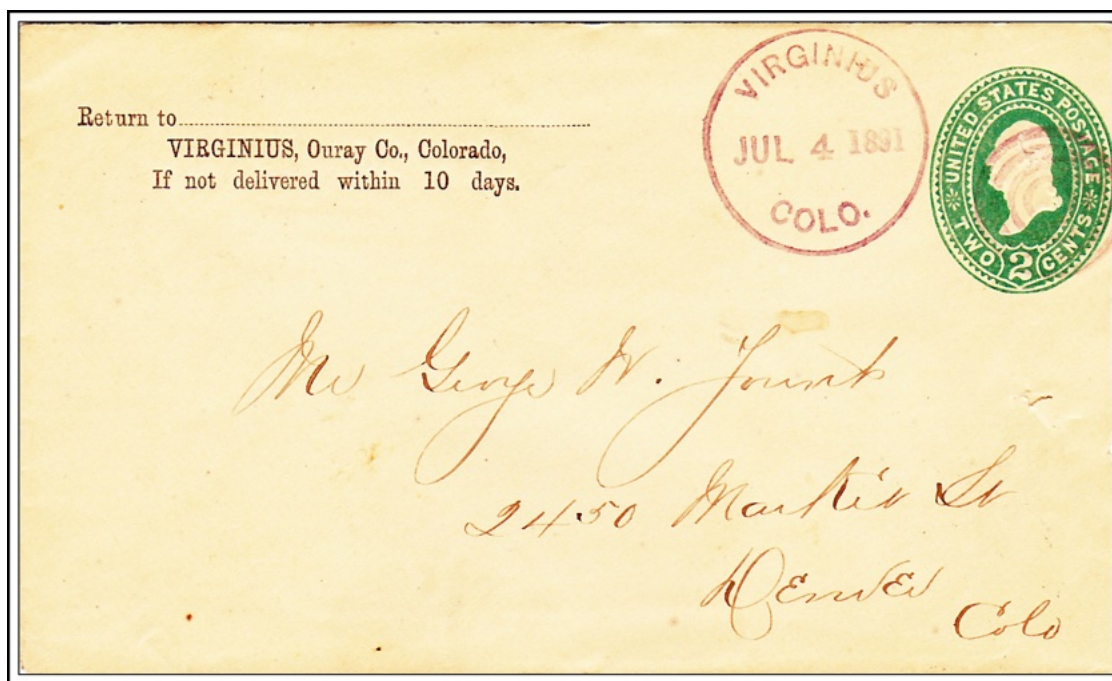 Return to
VIRGINIUS, Ouray Co., Colorado,
If not delivered within 10 days.
VIRGINIUS
JUL 4 1891
COLO.
UNITED STATES POSTAGE
TWO 2 CENTS
Mr George W.
2450 Market St
Denver
Colo